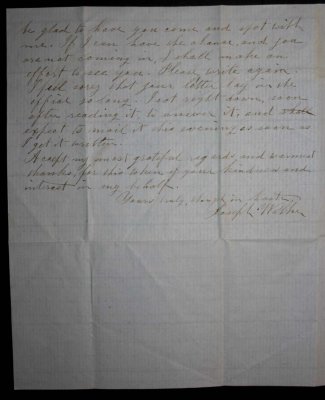 be glad to have you come and spot with
me. If I can have the chance, and you
are not coming in, I shall make an
effort to see you. Please write again.
I feel sorry that your letter lay in the
office so long. I sat right down, soon
after reading it, to answer it, and
expect to mail it this evening as soon as
I get it written.
Accept my most grateful regards and warmest
thanks, for this token of your kindness and
intrest in my behalf.
Yours truly, though in haste,
Joseph